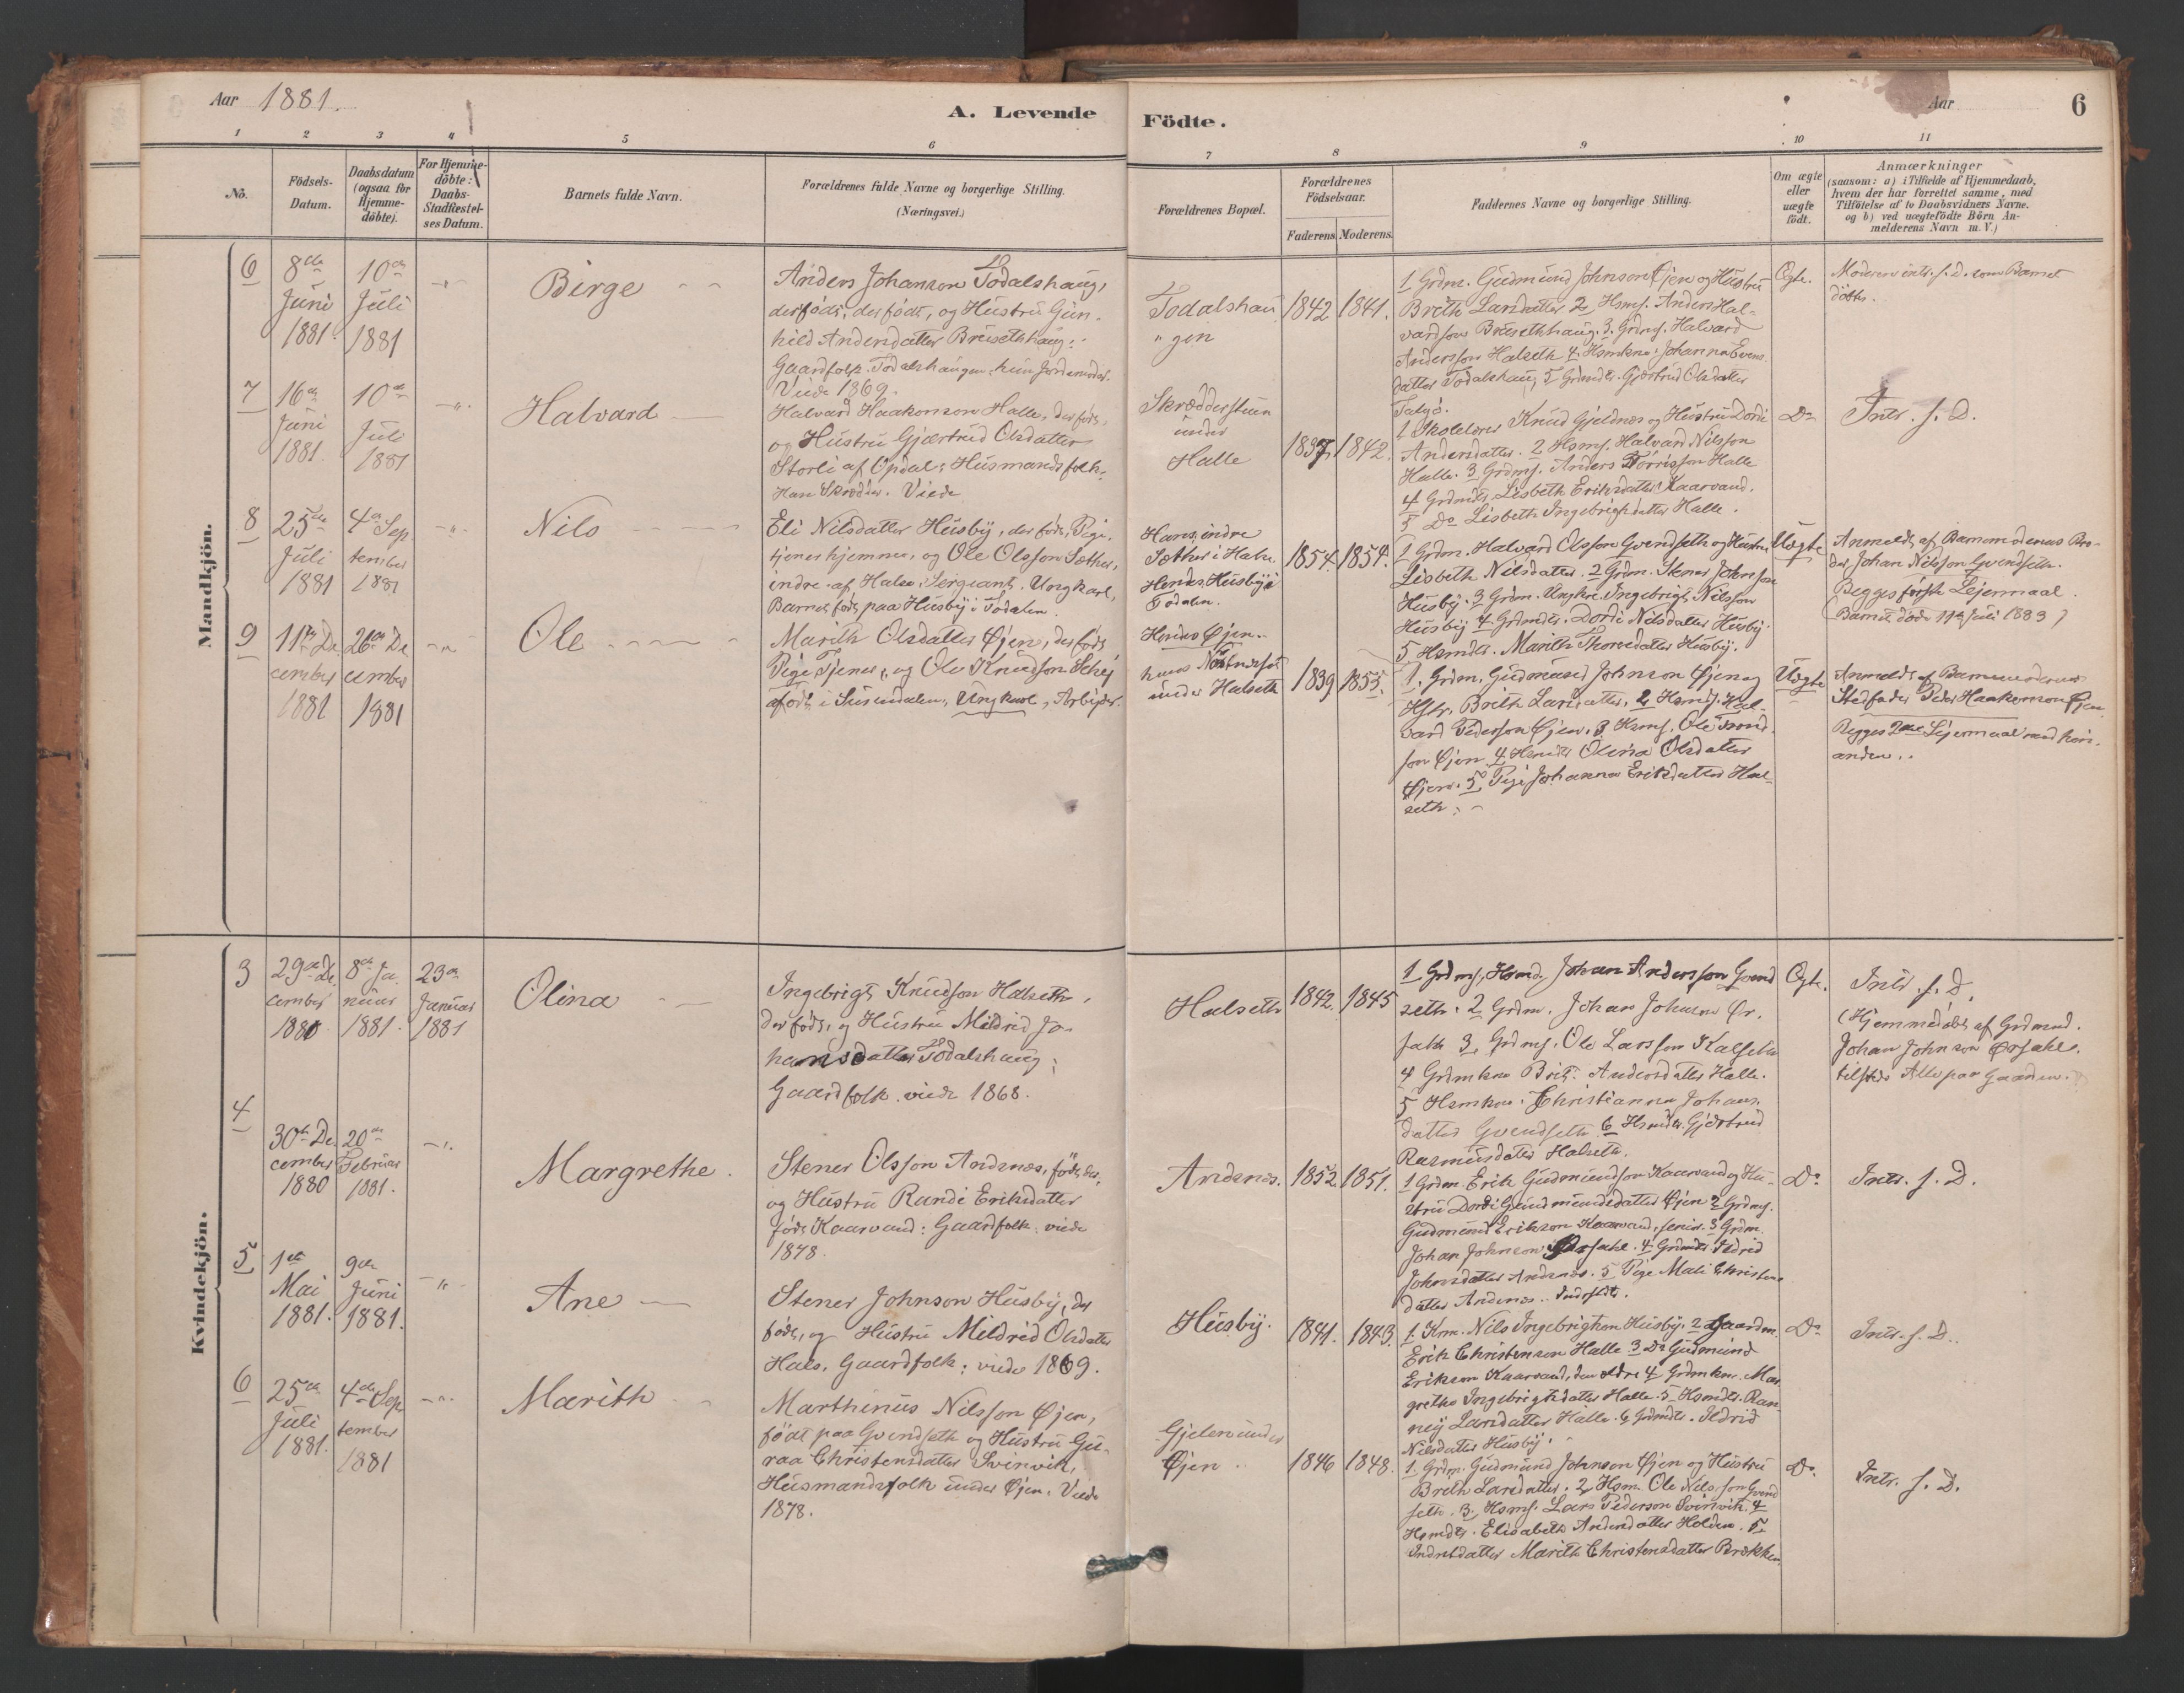 Aar 1881.
A. Levende
Födte.
Aar
6
1 2 3 4 5 6
7 8 9 10 11
No.
Födsels-
Datum.
Daabsdatum
(ogsaa for
Hjemme-
döbte).
For Hjemme-
döbte:
Daabs-
Stadfæstel-
ses Datum.
Barnets fulde Navn.
Forældrenes fulde Navne og borgerlige Stilling.
(Næringsvei.)
Forældrenes Bopæl.
Forældrenes
Födselsaar.
Faderens. Moderens.
Faddernes Navne og borgerlige Stilling.
Om ægte
eller
uægte
födt.
Anmærkninger
(saasom: a) i Tilfælde af Hjemmedaab,
hvem der har forrettet samme, med
Tilföielse af to Daabsvidners Navne.
og b) ved uægtefödte Börn An-
melderens Navn m. V.)
Mandkjön.
6
8de
Juni
1881.
10de
Juli
1881
Birge
Anders Johanson Todalshaug,
derfödt, og Hustru Gun-
hild Andersdatter Breisethhaug:
Gaardfolk. Todalshaugen, hun Jordemoder.
Viede 1869.
Todalshau
gen
1842 1841.
1 Grdm. Gudmund Johnson Øjen og Hustru
Brith Larsdatter 2 Hsms. Anders Hal-
vardson Breisethhaug. 3. Grdms. Halvard
Andersson Halseth 4. Hsmkne. Johanna Evens
datter Todalshaug, 5 Grdmdtr. Gjertrud Olsdatter
Talgö.
Ægte.
Moderen intr. s. d. som Barnet
döbtes.
7
16de
Juni
1881.
10de
Juli
1881
Halvard
Halvard Haakonson Halle, der föds,
og Hustru Gjærtrud Olsdatter
Storli af Opdal; Husmandsfolk.
Han Skrædder. Viede
Skrædderstuen
under
Halle
1837 1842.
1 Skolelærer Knud Gjeldnes og Hustru Dordi
Andersdatter. 2 Hsms. Halvard Nilsson
Halle. 3 Grdms. Anders Torrisson Halle
4 Grdmdtr. Lisbeth Eriksdatter Kaarvand.
5 Do Lisbeth Ingebrigtsdatter Halle.
Do
Intr. s. D.
8
25de
Juli
1881
4de Sep
tember
1881
Nils
Eli Nilsdatter Husby, der föds, Pige,
tjener hjemme, og Ole Olsson Sæther,
indre af Halse, Sergeant. Ungkarl,
Barnet föds paa Husby i Todalen.
Hans, indre
Sæther i Halse
Hendes, Husby i
Todalen.
1854. 1854.
1 Grdm. Halvard Olsson Gvendseth og Hustru
Lisbeth Nilsdatter. 2 Grdm. Stener Johnson
Husby. 3 Grdm. Ungkrl. Ingebrigt Nilsson
Husby 4 Grdmdtr. Dordi Nilsdatter Husby.
5 Hsmdtr. Marith Thorvedatter Husby.
Uægte
Anmeldt af Barnemoderens Bro-
der, Johan Nilsson Gvendseth.
Begges förste Lejermaal.
(Barnet döde 11te Juli 1883)
9
11te De
cember
1881
26de De
cember
1881
Ole
Marith Olsdatter Øjen, der föds
Pige Tjener, og Ole Knudson Skej
afödt i Surendalen, Ungkarl, Arbejder.
Hendes Øjen.
hans
under Halseth
1839 1853.
1. Grdm. Gudmund Johnson Øjen og
Hstr. Brith Larsdatter, 2 Hsmds. Hal-
vard Pederson Øjen. 3 Hsms. Ole
son Øjen 4 Hsmdtr Olina Olsdatter
Øjen. 5 Pige Johanna Eriksdatter Hal-
seth.
Uægte
Anmeldt af Barnemoderens
Stedfader Peder Haakonson Øjen.
Begges 2det Lejermaal med hin-
anden.
Kvindekjön.
3
29de De
cember
1880.
8de Ja
nuar
1881.
23de
Januar
1881
Olina
Ingebrigt Knudson Halseth,
der föds, og Hustru Mildrid Jo-
hansdatter Todalshaug;
Gaardfolk. viede 1868.
Halseth
1842. 1845
1. Grdms, Hsmd. Johan Andersson Gvend
seth. 2 Grdm. Johan Johnson Ør-
sahl 3 Grdms. Ole Larsson Kalseth
4 Grdmkne Brit. Andersdatter Halle.
5 Hsmkne. Christianna Johans-
datter Gvendseth 6 Hsmdtr. Gjertrud
Rasmusdatter Halseth.
Ægte.
Intr. s. d.
(Hjemmedöbt af Grdmand.
Johan Johnson Ørsahl.
tilstede Alle paa Gaarden.
4
30te De
cember
1880
20de
Februar
1881.
Margrethe.
Stener Olsson Andsnes, föds der,
og Hustru Randi Eriksdatter
föds Kaarvand: Gaardfolk. viede
1878.
Andsnes.
1852. 1851.
1 Grdm. Erik Gudmundson Kaarvand og Hu-
stru Dordi Gudmundsdatter Øjen 2 Grdms.
Gudmund Erikson Kaarvand, senior. 3 Grdm.
Johan Johnson Ørsahl. 4 Grdmdtr. Ildrid
Johnsdatter Andsnes. 5 Pige Mali Christens
datter Andsnes.
Do
Intr. s. D.
5
1ste
Mai
1881.
9de
Juni
1881.
Ane
Stener Johnson Husby, der
föds, og Hustru Mildrid Olsdatter
Hals, Gaardfolk; viede 1869.
Husby.
1841. 1843.
1. Krm. Nils Ingebrigtson Husby. 2 Gaardm.
Erik Christenson Halle 3 Do Gudmund
Erikson Kaarvand, den ældre 4 Grdmkne. Mar
grethe Ingebrigtsdatter Halle. 5 Hsmdtr. Ran-
nej Larsdatter Halle. 6 Grdmdtr. Ildrid
Nilsdatter Husby.
Do
Intr. s. D.
6
25de
Juli
1881.
4de Sep
tember
1881
Marith
Marthinus Nilsson Øjen,
födt paa Gvendseth og Hustru Gu-
raa Christensdatter Svinvik,
Husmandsfolk under Øjen. Viede
1878.
under
Øjen
1846 1848.
1. Grdm. Gudmund Johnson Øjen og Hustru
Brith Larsdatter. 2 Hsm. Ole Nilsson Gvend
seth. 3 Hsms. Lars Pederson Svinvik. 4
Hsmdtr. Elisabeth Andersdatter Holden. 5
Indrstdatter Marith Christensdatter Brækken
Do.
Intr. s. D.